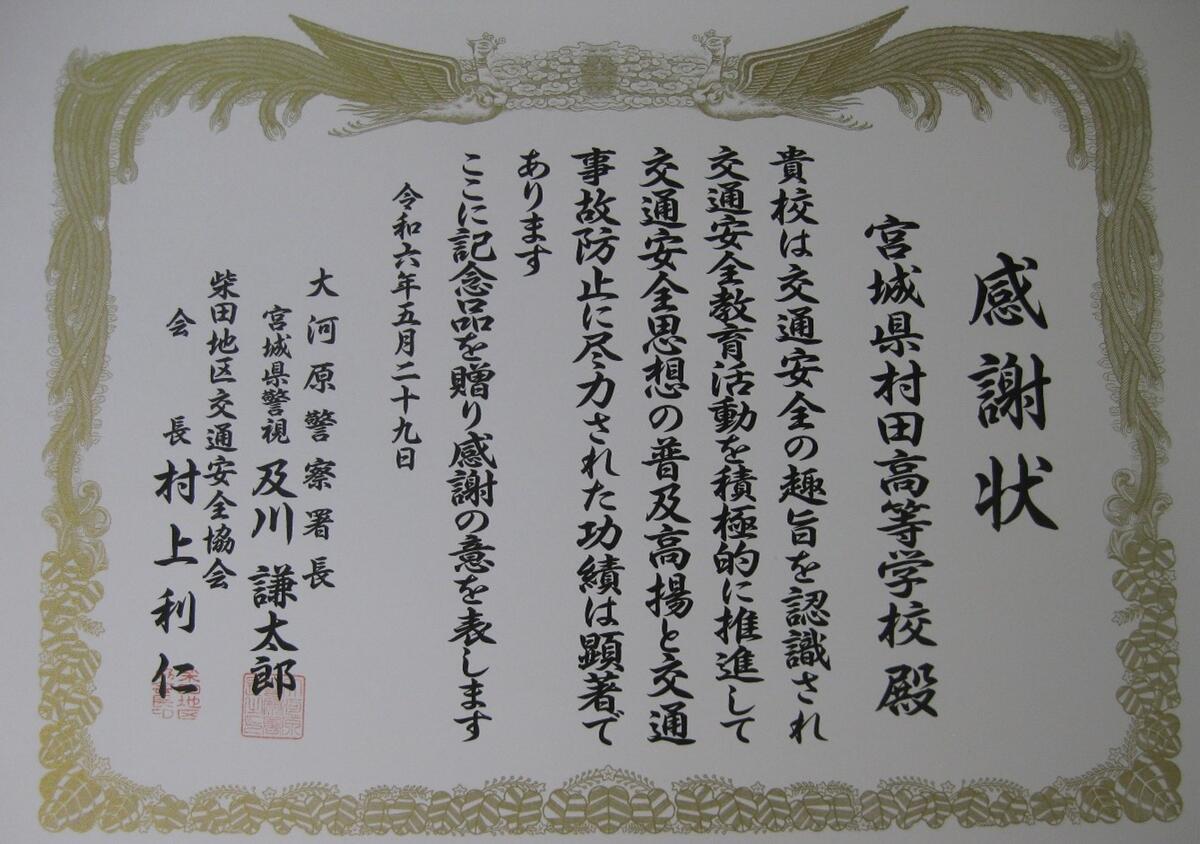 感謝状
宮城県村田高等学校殿
貴校は交通安全の趣旨を認識され
交通安全教育活動を積極的に推進して
交通安全思想の普及高揚と交通
事故防止に尽力された功績は顕著で
あります
ここに記念品を贈り感謝の意を表します
令和六年五月二十九日
大河原警察署長
宮城県警視 及川謙太郎
柴田地区交通安全協会
会長 村上利仁